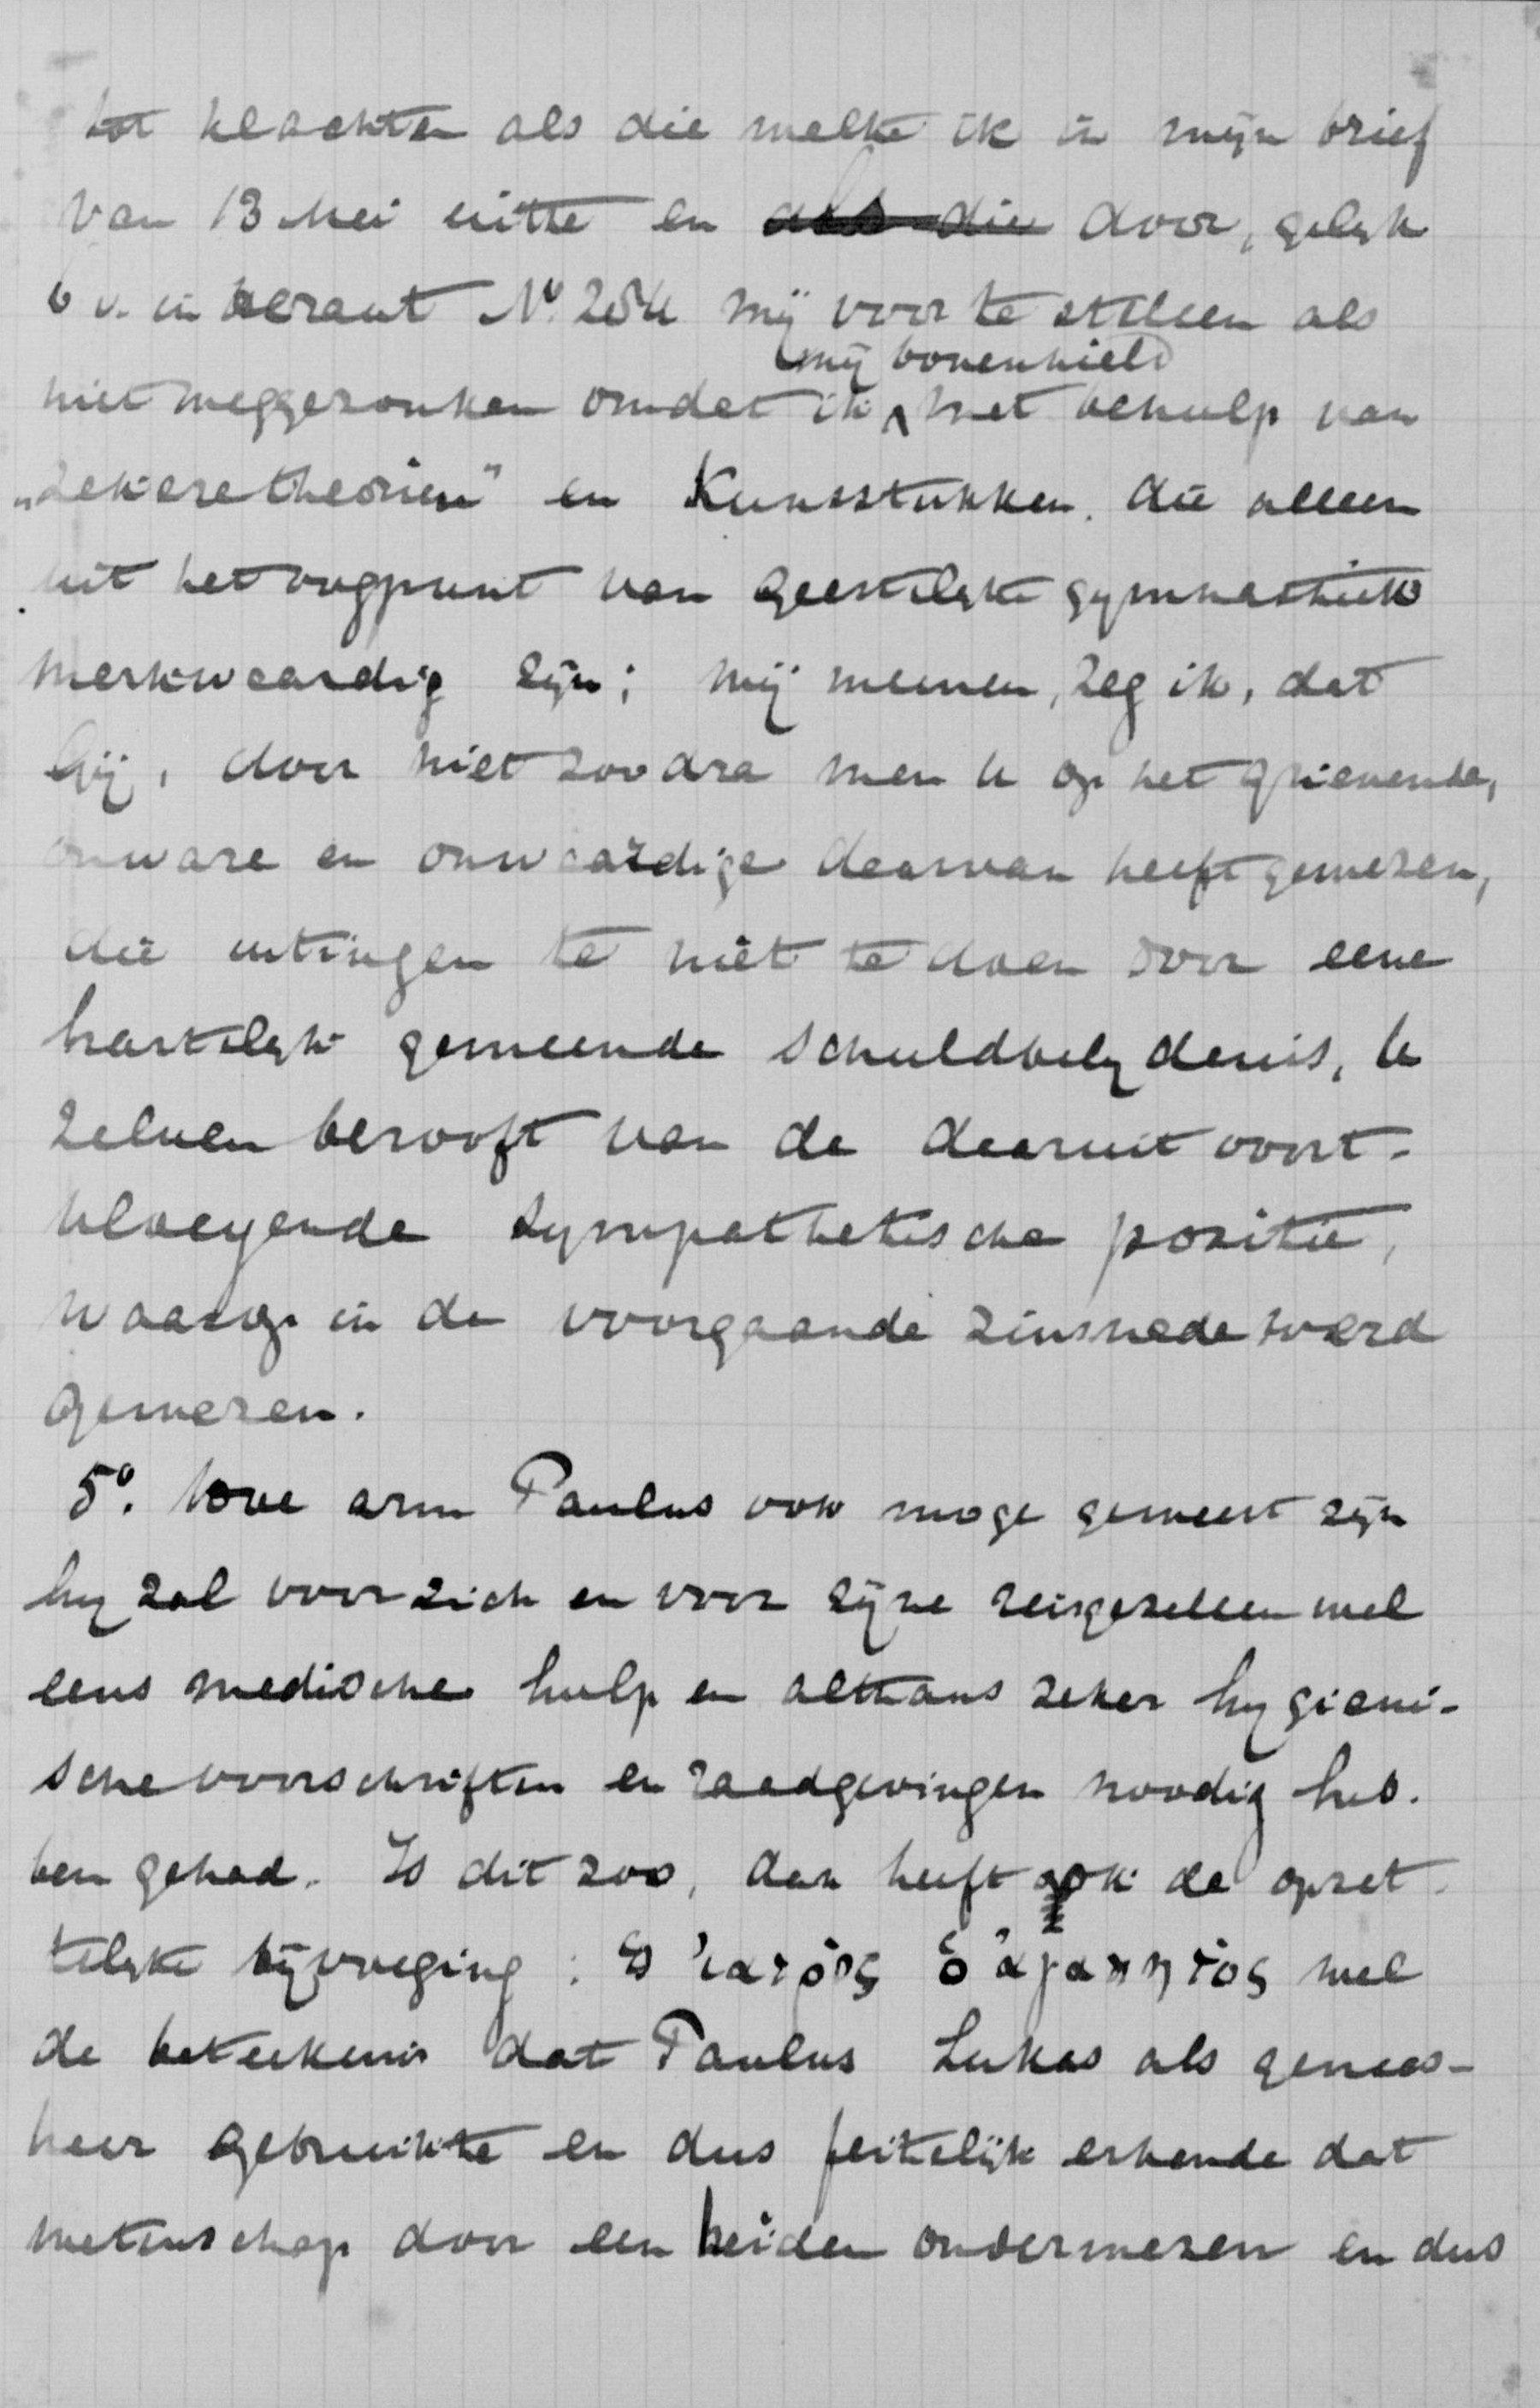 tot klachten als die welke ik in mijn brief
van 13 Mei uitte en als die door, gelijk
b v. in Heraut No. 204 mij voor te stellen als
niet weggezonken omdat ik mij bovenhield met behulp van
„zekere theoriën" en Kunststukken. die alleen
uit het oogpunt van geestelijke gymnastiek
merkwaardig zijn; mij meenen, zeg ik, dat
Gij, door niet zoodra men U op het grievende,
onware en onwaardige daarvan heeft gewezen,
die uitingen te niet te doen door eene
hartelijk gemeende schuldbelydenis, U
zelven berooft van de daaruit voort-
vloeyende sympathetische positie,
waarop in de voorgaande zinsnede werd
gewezen.
5o. Hoe arm Paulus ook moge geweest zijn
hy zal voor zich en voor zijne reisgezellen wel
eens medische hulp en althans zeker hygieni-
sche voorschriften en raadgevingen noodig heb-
ben gehad. Is dit zoo, dan heeft ook de opzet-
telijke bijvoeging: ὁ ἰατρός ὁ ἀγαπητὸς wel
de beteekenis dat Paulus Lukas als genees-
heer gebruikte en dus feitelijk erkende dat
wetenschap door een heiden onderwezen en dus